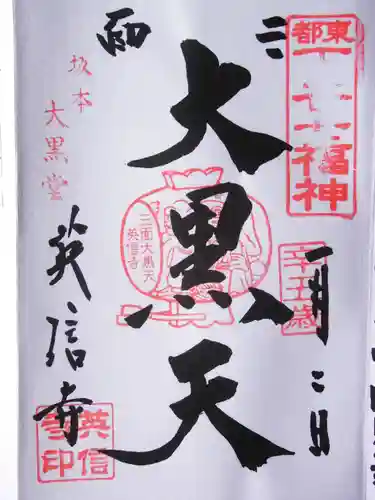 東都
下谷七福神
辛丑歳
一月二日
三面
大黒天
三面大黒天
英信寺
坂本
大黒堂
英信寺
英信寺印